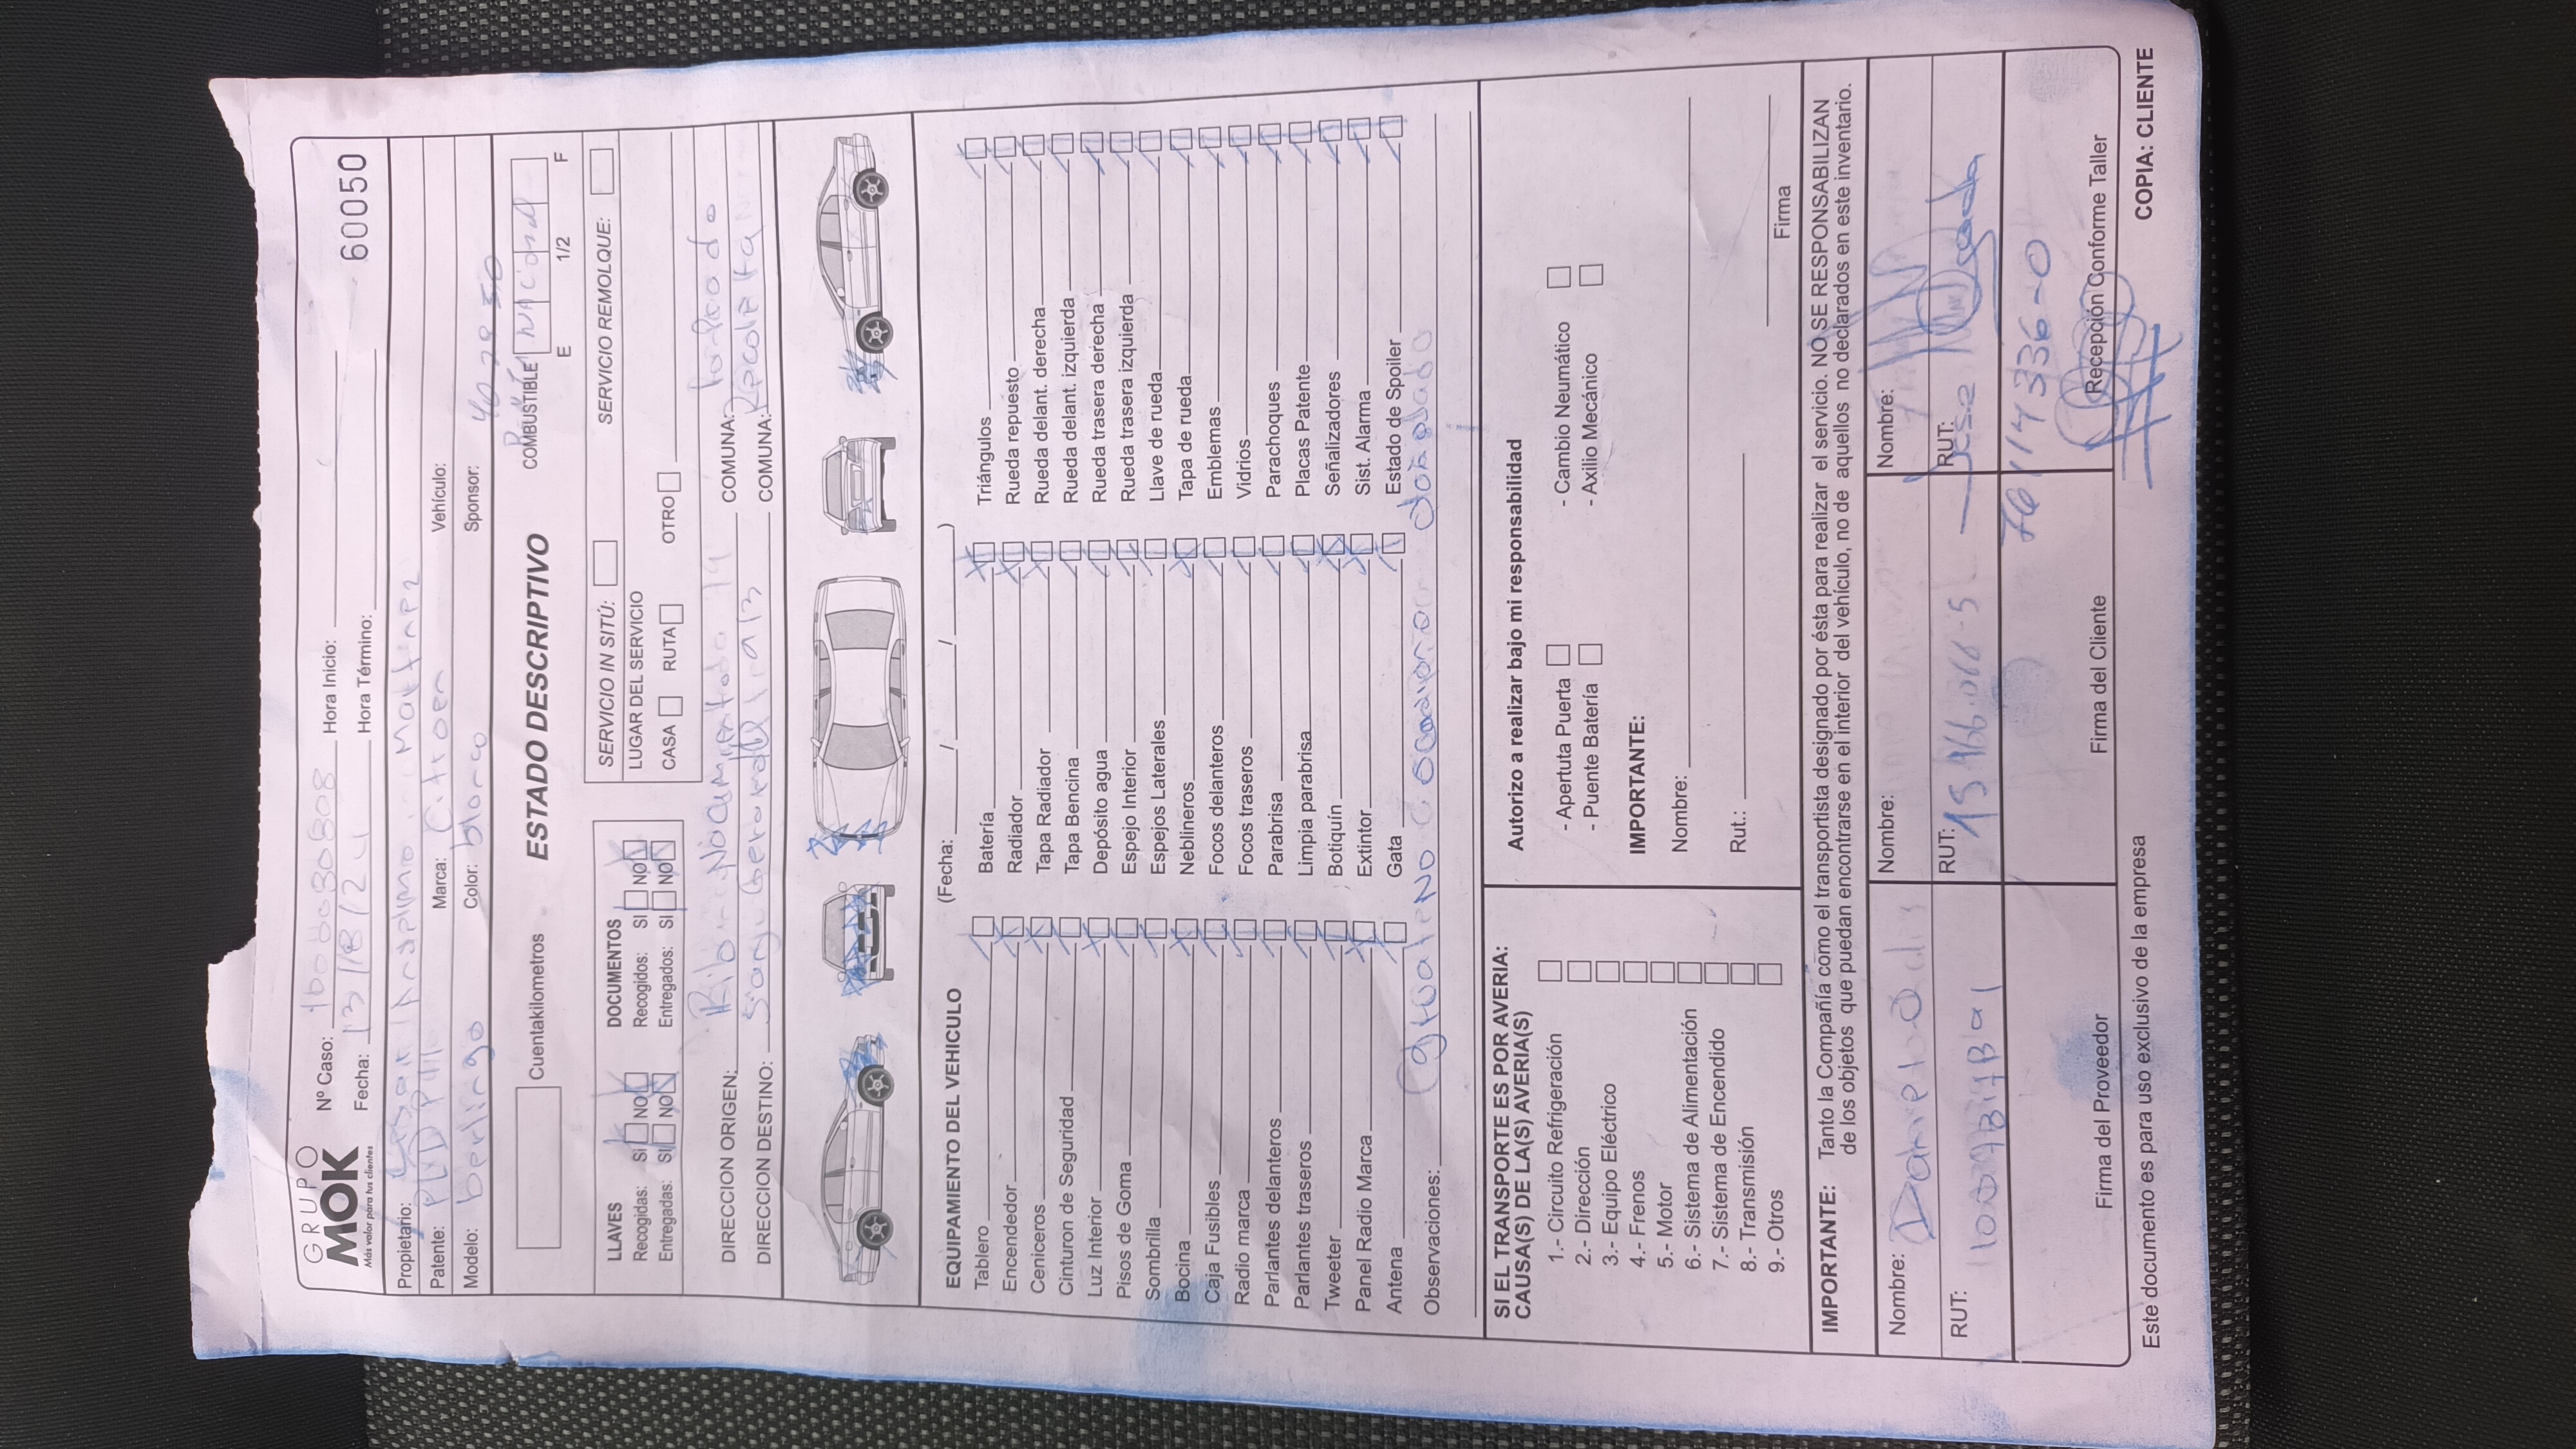 GRUPO
MOK
Más valor para tus clientes
Nº Caso: Hora Inicio:
Fecha: 13/18/24 Hora Término:
60050
Propietario:
Patente: Marca: Citroen Vehículo:
Modelo: berlingo Color: blanco Sponsor:
Cuentakilometros
ESTADO DESCRIPTIVO
COMBUSTIBLE
E 1/2 F
LLAVES
Recogidas: SI NO
Entregadas: SI NO
DOCUMENTOS
Recogidos: SI NO
Entregados: SI NO
SERVICIO IN SITÚ:
SERVICIO REMOLQUE:
LUGAR DEL SERVICIO
CASA RUTA OTRO
DIRECCION ORIGEN: COMUNA:
DIRECCION DESTINO: COMUNA: Recoleta
EQUIPAMIENTO DEL VEHICULO (Fecha: / / )
Tablero Batería Triángulos
Encendedor Radiador Rueda repuesto
Ceniceros Tapa Radiador Rueda delant. derecha
Cinturon de Seguridad Tapa Bencina Rueda delant. izquierda
Luz Interior Depósito agua Rueda trasera derecha
Pisos de Goma Espejo Interior Rueda trasera izquierda
Sombrilla Espejos Laterales Llave de rueda
Bocina Neblineros Tapa de rueda
Caja Fusibles Focos delanteros Emblemas
Radio marca Focos traseros Vidrios
Parlantes delanteros Parabrisa Parachoques
Parlantes traseros Limpia parabrisa Placas Patente
Tweeter Botiquín Señalizadores
Panel Radio Marca Extintor Sist. Alarma
Antena Gata Estado de Spoiler
Observaciones:
SI EL TRANSPORTE ES POR AVERIA:
CAUSA(S) DE LA(S) AVERIA(S)
1.- Circuito Refrigeración
2.- Dirección
3.- Equipo Eléctrico
4.- Frenos
5.- Motor
6.- Sistema de Alimentación
7.- Sistema de Encendido
8.- Transmisión
9.- Otros
Autorizo a realizar bajo mi responsabilidad
- Apertuta Puerta - Cambio Neumático
- Puente Batería - Axilio Mecánico
IMPORTANTE:
Nombre:
Rut.:
Firma
IMPORTANTE: Tanto la Compañía como el transportista designado por ésta para realizar el servicio. NO SE RESPONSABILIZAN
de los objetos que puedan encontrarse en el interior del vehículo, no de aquellos no declarados en este inventario.
Nombre: Nombre: Nombre:
RUT: RUT: 15.466.066-5 RUT:
76114336-0
Firma del Proveedor Firma del Cliente Recepción Conforme Taller
Este documento es para uso exclusivo de la empresa
COPIA: CLIENTE